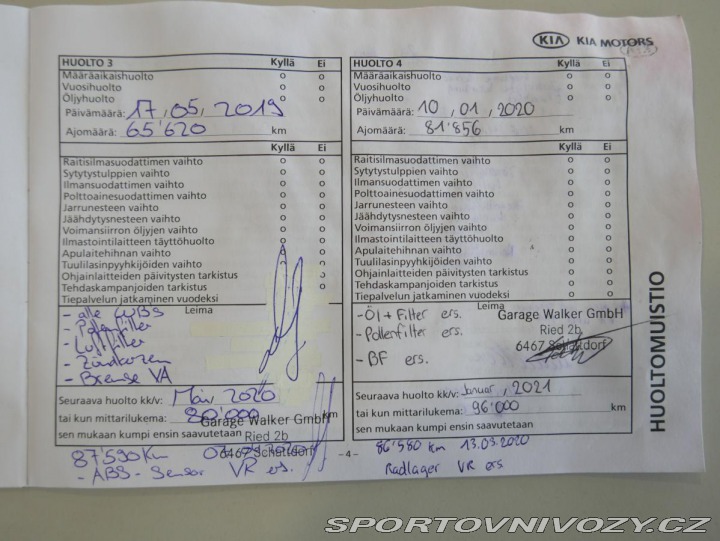 KIA KIA MOTORS
HUOLTO 3 Kyllä Ei
Määräaikaishuolto o o
Vuosihuolto o o
Öljyhuolto o o
Päivämäärä: 17, 05, 2019
Ajomäärä: 65'620 km
Kyllä Ei
Raitisilmasuodattimen vaihto o o
Sytytystulppien vaihto o o
Ilmansuodattimen vaihto o o
Polttoainesuodattimen vaihto o o
Jarrunesteen vaihto o o
Jäähdytysnesteen vaihto o o
Voimansiirron öljyjen vaihto o o
Ilmastointilaitteen täyttöhuolto o o
Apulaitehihnan vaihto o o
Tuulilasinpyyhkijöiden vaihto o o
Ohjainlaitteiden päivitysten tarkistus o
Tehdaskampanjoiden tarkistus o o
Tiepalvelun jatkaminen vuodeksi o
Leima
- alle
- Pollenfilter
- Luftfilter
- Zündkerzen
- Bremse VA
Seuraava huolto kk/v: Mai 2020
tai kun mittarilukema: 80'000 km
sen mukaan kumpi ensin saavutetaan
Garage Walker GmbH
Ried 2b
6467 Schattdorf
87'590 Km 2020
- ABS - Sensor VR ers.
HUOLTO 4 Kyllä Ei
Määräaikaishuolto o o
Vuosihuolto o o
Öljyhuolto o o
Päivämäärä: 10, 01, 2020
Ajomäärä: 81'856 km
Kyllä Ei
Raitisilmasuodattimen vaihto o o
Sytytystulppien vaihto o o
Ilmansuodattimen vaihto o o
Polttoainesuodattimen vaihto o o
Jarrunesteen vaihto o o
Jäähdytysnesteen vaihto o o
Voimansiirron öljyjen vaihto o o
Ilmastointilaitteen täyttöhuolto o o
Apulaitehihnan vaihto o o
Tuulilasinpyyhkijöiden vaihto o o
Ohjainlaitteiden päivitysten tarkistus o o
Tehdaskampanjoiden tarkistus o o
Tiepalvelun jatkaminen vuodeksi o o
Leima
- Öl + Filter ers.
- Pollenfilter ers.
- BF ers.
Garage Walker GmbH
Ried 2b
6467 Schattdorf
Seuraava huolto kk/v: Januar, 2021
tai kun mittarilukema: 96'000 km
sen mukaan kumpi ensin saavutetaan
86'580 km 13.03.2020
Radlager VR ers
-4-
HUOLTOMUISTIO
SPORTOVNIVOZY.CZ